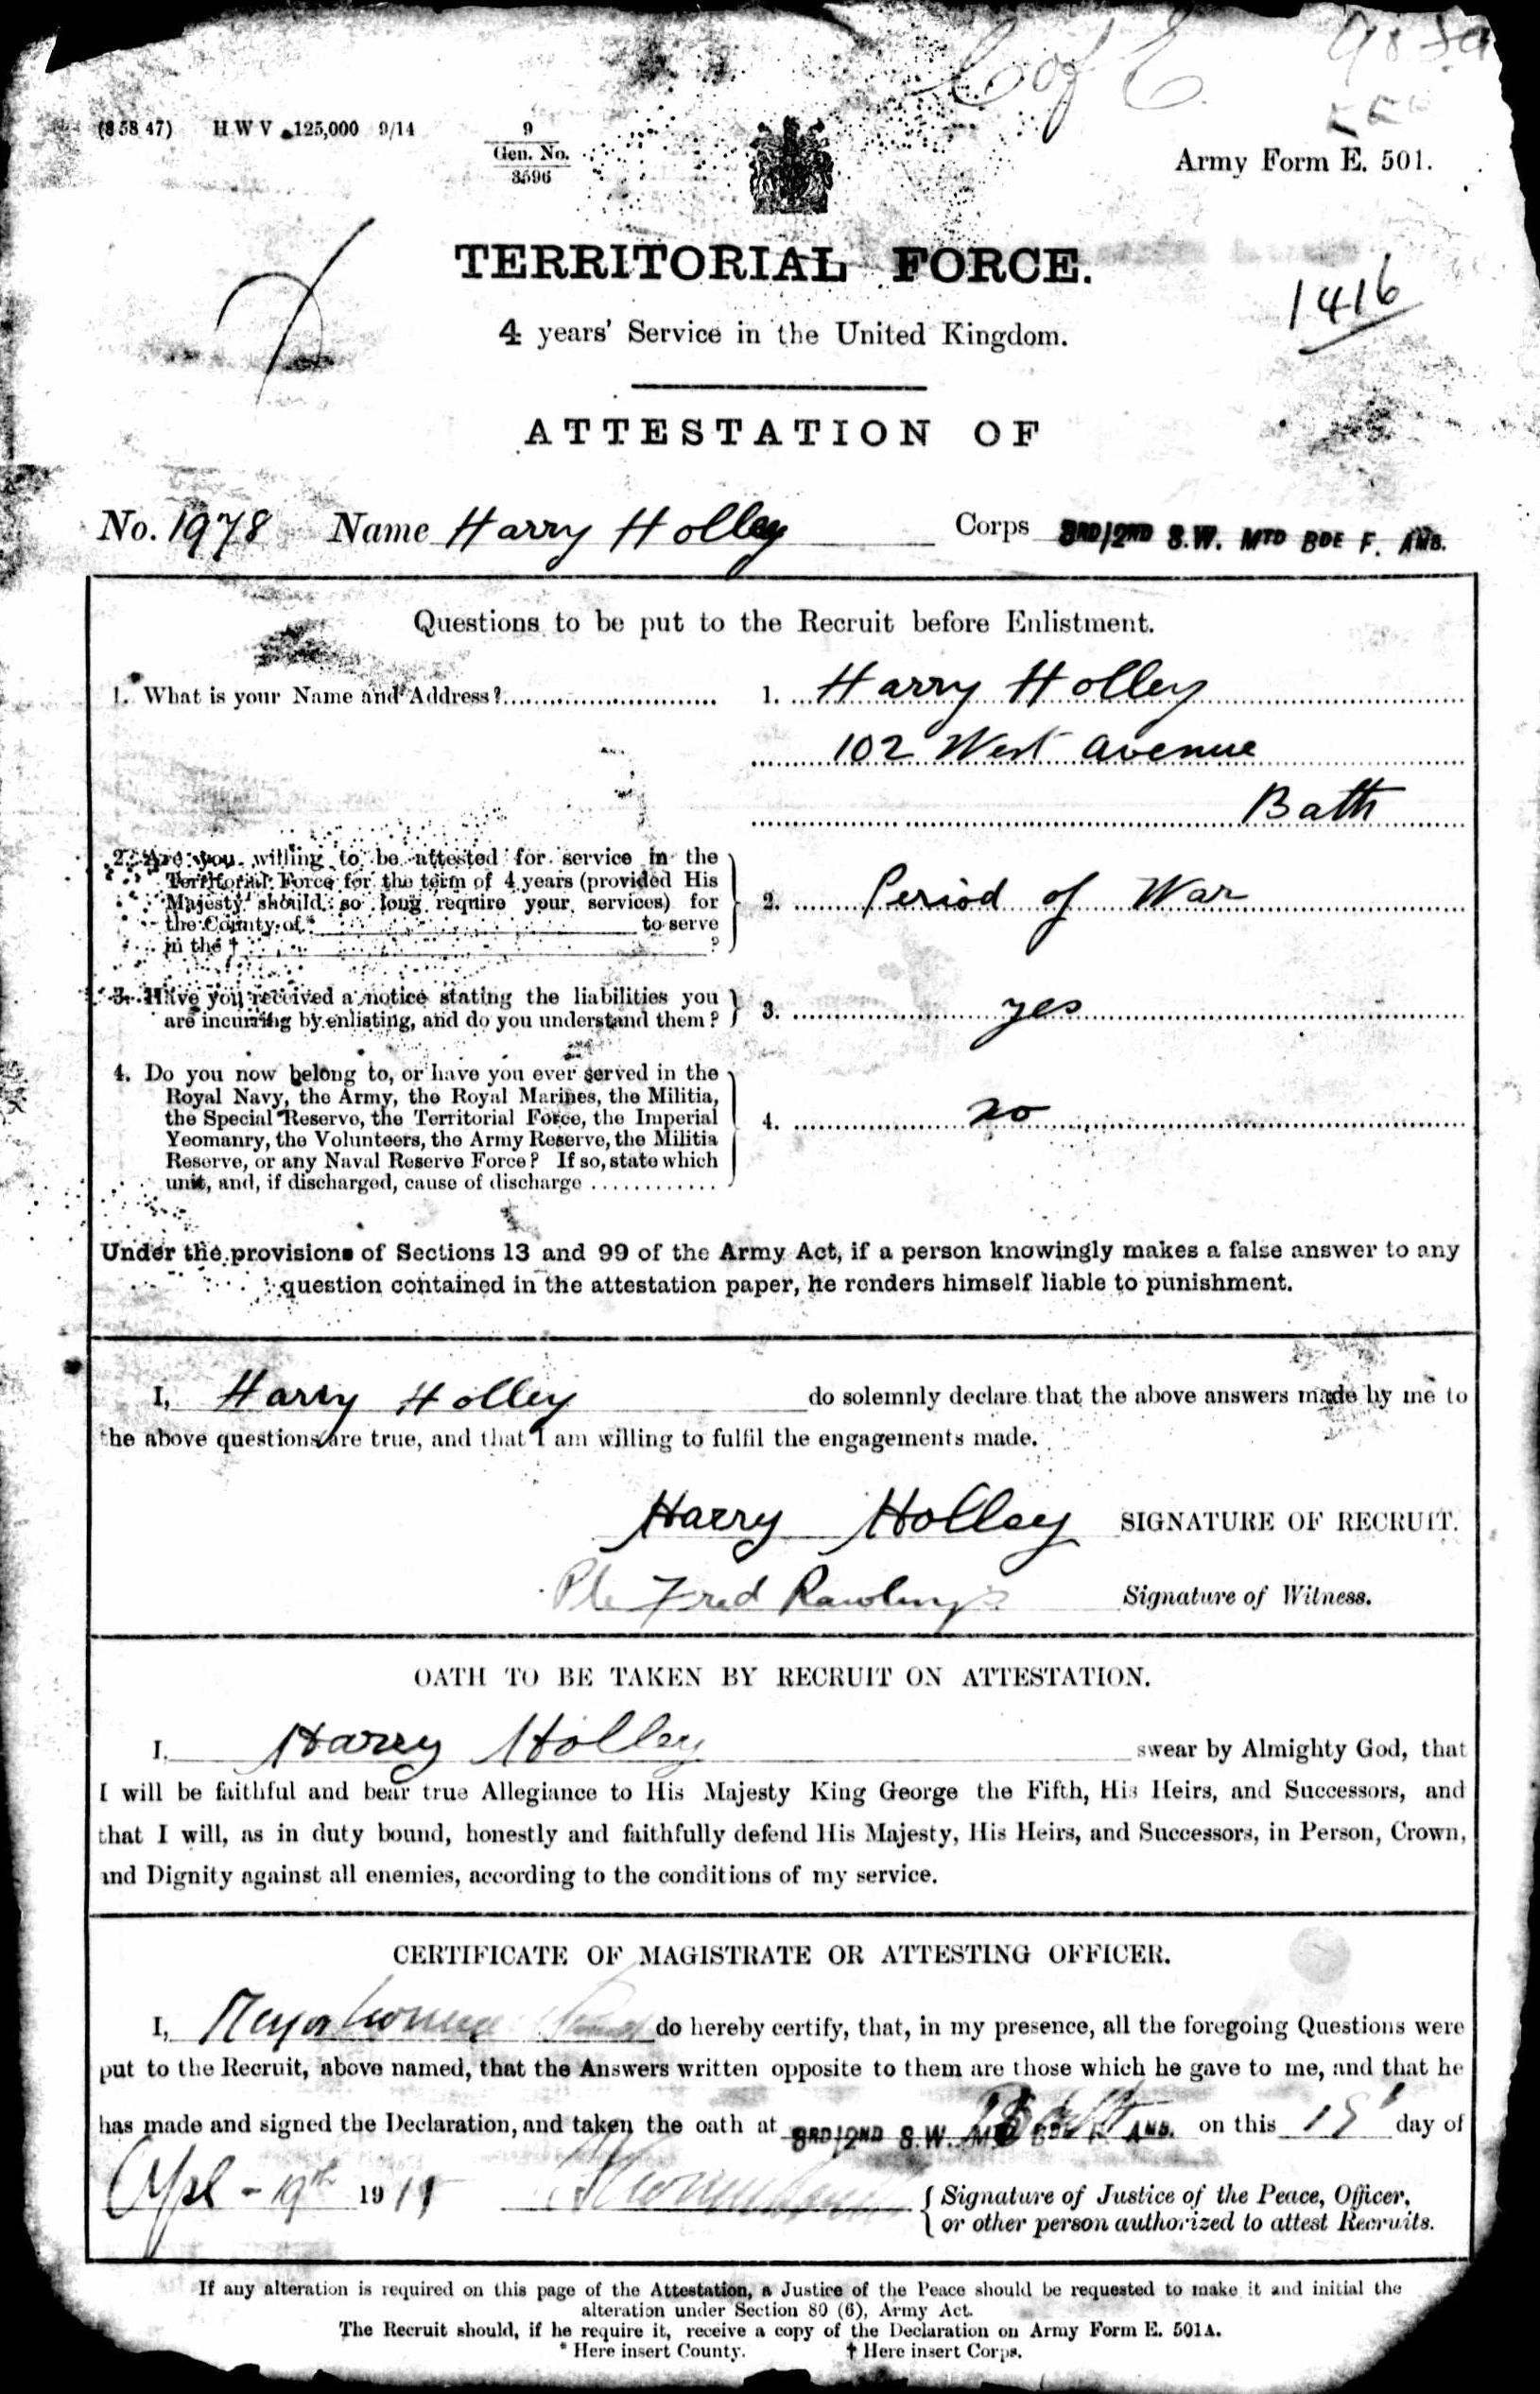 C of E
(8 58 47) H W V 125,000 9/14
9
Gen. No.
3596
Army Form E. 501.
TERRITORIAL FORCE.
1416
4 years' Service in the United Kingdom.
ATTESTATION OF
No. 1978 Name Harry Holley Corps 3RD/2ND S.W. MTD BDE F. AMB.
Questions to be put to the Recruit before Enlistment.
1. What is your Name and Address? 1. Harry Holley
102 West Avenue
Bath
2. Are you willing to be attested for service in the
Territorial Force for the term of 4 years (provided His
Majesty should so long require your services) for
the County of * to serve
in the † ?
2. Period of War
3. Have you received a notice stating the liabilities you
are incurring by enlisting, and do you understand them?
3. yes
4. Do you now belong to, or have you ever served in the
Royal Navy, the Army, the Royal Marines, the Militia,
the Special Reserve, the Territorial Force, the Imperial
Yeomanry, the Volunteers, the Army Reserve, the Militia
Reserve, or any Naval Reserve Force? If so, state which
unit, and, if discharged, cause of discharge
4. no
Under the provisions of Sections 13 and 99 of the Army Act, if a person knowingly makes a false answer to any
question contained in the attestation paper, he renders himself liable to punishment.
I, Harry Holley do solemnly declare that the above answers made by me to
the above questions are true, and that I am willing to fulfil the engagements made.
Harry Holley SIGNATURE OF RECRUIT.
Pte Fred Rawlings Signature of Witness.
OATH TO BE TAKEN BY RECRUIT ON ATTESTATION.
I, Harry Holley swear by Almighty God, that
I will be faithful and bear true Allegiance to His Majesty King George the Fifth, His Heirs, and Successors, and
that I will, as in duty bound, honestly and faithfully defend His Majesty, His Heirs, and Successors, in Person, Crown,
and Dignity against all enemies, according to the conditions of my service.
CERTIFICATE OF MAGISTRATE OR ATTESTING OFFICER.
I, Major do hereby certify, that, in my presence, all the foregoing Questions were
put to the Recruit, above named, that the Answers written opposite to them are those which he gave to me, and that he
has made and signed the Declaration, and taken the oath at 3RD/2ND S.W. MTD BDE F. AMB. Bath on this 19 day of
Apl - 19th 1915
Signature of Justice of the Peace, Officer,
or other person authorized to attest Recruits.
If any alteration is required on this page of the Attestation, a Justice of the Peace should be requested to make it and initial the
alteration under Section 80 (6), Army Act.
The Recruit should, if he require it, receive a copy of the Declaration on Army Form E. 501A.
* Here insert County. † Here insert Corps.